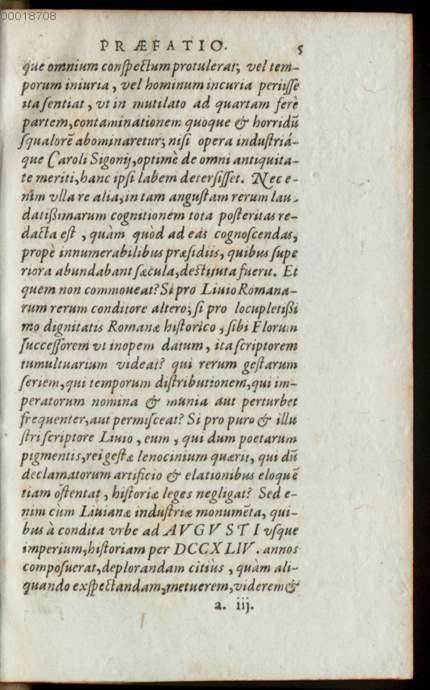 00018708
PRÆFATIO. 5
que omnium conſpectum protulerat; vel tem-
porum iniuria, vel hominum incuria periiſſe
ita ſentiat, vt in mutilato ad quartam ferè
partem, contaminationem quoque & horridũ
ſqualorẽ abominaretur; niſi opera induſtriá-
que Caroli Sigonij, optimè de omni antiquita-
te meriti, hanc ipſi labem deterſiſſet. Nec e-
nim vlla re alia, in tam anguſtam rerum lau-
datißimarum cognitionem tota poſteritas re-
dacta eſt, quàm quòd ad eas cognoſcendas,
propè innumerabilibus præſidiis, quibus ſupe
riora abundabant ſæcula, deſtituta fuerit. Et
quem non commoueat? Si pro Liuio Romana-
rum rerum conditore altero; ſi pro locupletißi
mo dignitatis Romanæ hiſtorico, ſibi Florum
ſucceſſorem vt inopem datum, ita ſcriptorem
tumultuarium videat? qui rerum geſtarum
ſeriem, qui temporum diſtributionem, qui im-
peratorum nomina & munia aut perturbet
frequenter, aut permiſceat? Si pro puro & illu
ſtri ſcriptore Liuio, eum, qui dum poetarum
pigmentis, rei geſtæ lenocinium quærit, qui dũ
declamatorum artificio & elationibus eloquẽ
tiam oſtentat, hiſtoriæ leges negligat? Sed e-
nim cùm Liuianæ induſtriæ monumẽta, qui-
bus à condita vrbe ad AVGVSTI vſque
imperium, hiſtoriam per DCCXLIV. annos
compoſuerat, deplorandam citius, quàm ali-
quando exſpectandam, metuerem, viderem &
a. iij.